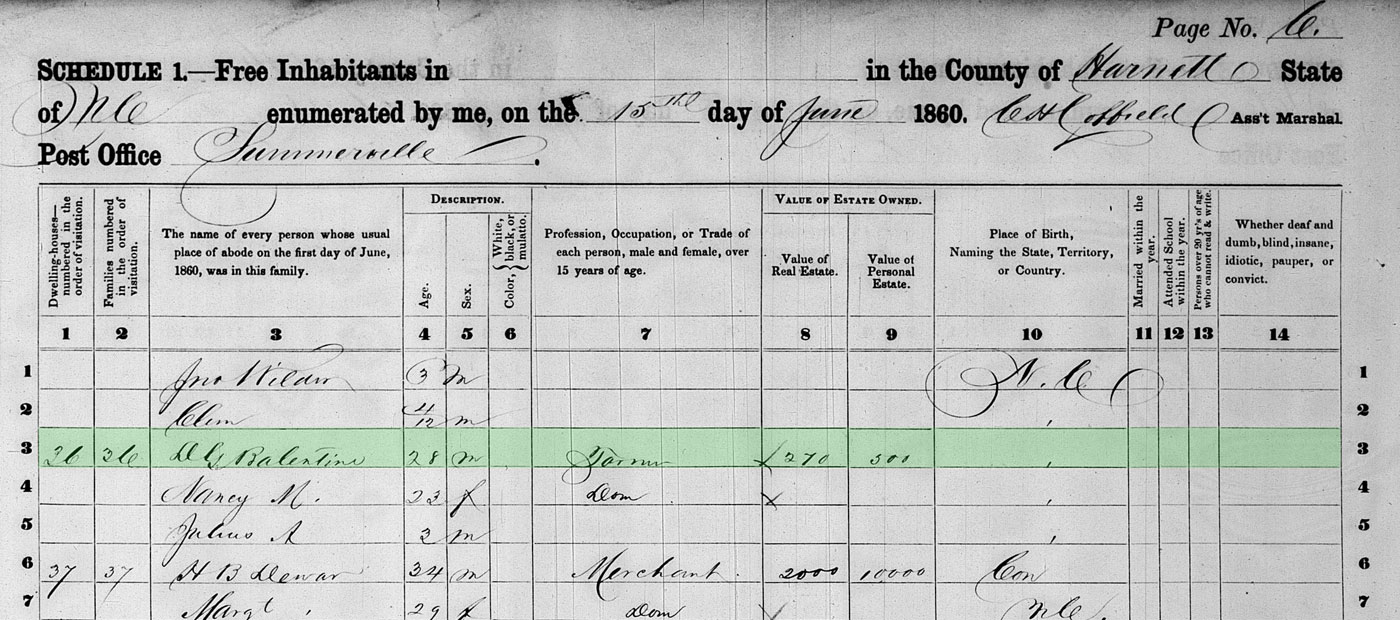 Page No. 6.
SCHEDULE 1.—Free Inhabitants in in the County of Harnett State
of N C enumerated by me, on the 15th day of June 1860. Ass't Marshal.
Post Office Summerville.
DESCRIPTION. VALUE OF ESTATE OWNED.
Dwelling-houses—numbered in the order of visitation.
Families numbered in the order of visitation.
The name of every person whose usual place of abode on the first day of June, 1860, was in this family.
Age.
Sex.
Color, { White, black, or mulatto.
Profession, Occupation, or Trade of each person, male and female, over 15 years of age.
Value of Real Estate.
Value of Personal Estate.
Place of Birth, Naming the State, Territory, or Country.
Married within the year.
Attended School within the year.
Persons over 20 yr's of age who cannot read & write.
Whether deaf and dumb, blind, insane, idiotic, pauper, or convict.
1 2 3 4 5 6 7 8 9 10 11 12 13 14
1 Jno 3 m N. C 1
2 Clem 4/12 m , 2
3 36 36 D G Balentine 28 m Farmer 270 300 , 3
4 Nancy M. 23 f Dom , 4
5 Julius A 2 m , 5
6 37 37 H B Dewar 34 m Merchant 2000 10000 Con 6
7 Margt , 29 f Dom N C. 7